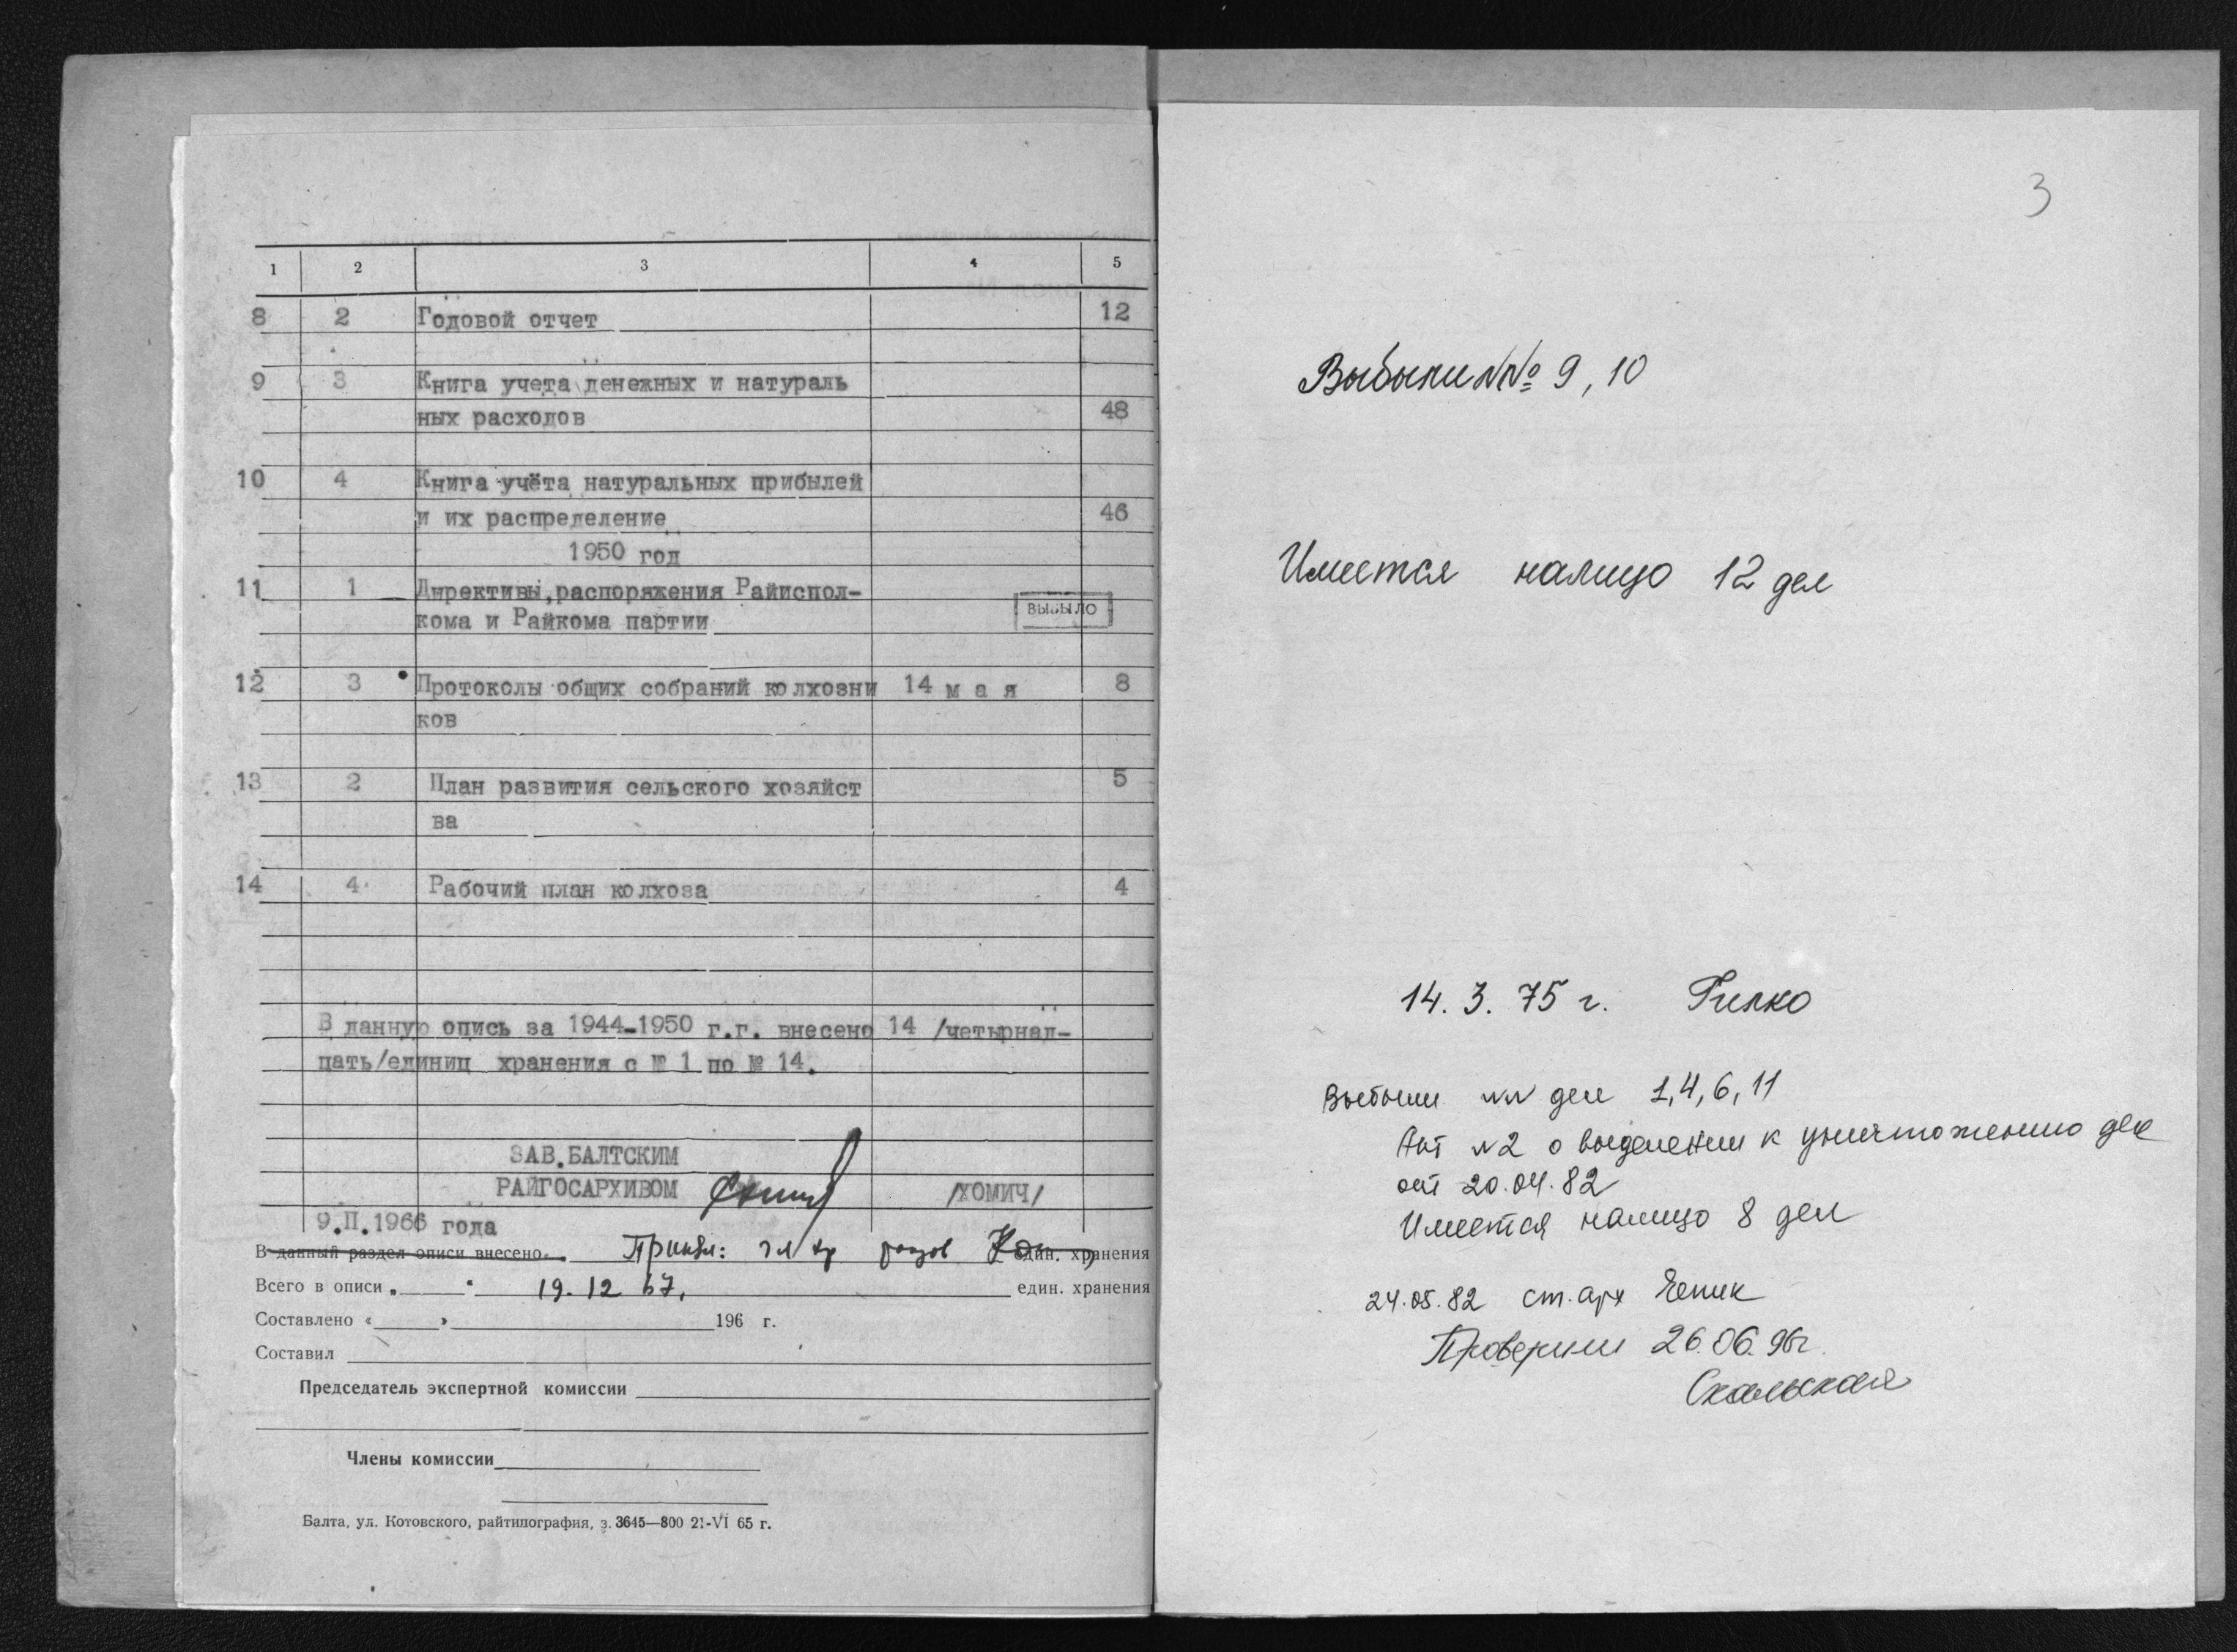 1 2 3 4 5
8 2 Годовой отчет 12
9 3 Книга учета денежных и натураль
ных расходов 48
10 4 Книга учёта натуральных прибылей
и их распределение 46
1950 год
11 1 Директивы,распоряжения Райиспол-
кома и Райкома партии ВЫБЫЛО
12 3 Протоколы общих собраний колхозни 14 мая 8
ков
13 2 План развития сельского хозяйст 5
ва
14 4 Рабочий план колхоза 4
В данную опись за 1944-1950 г.г. внесено 14 /четырнад-
цать/единиц хранения с № 1 по № 14.
ЗАВ.БАЛТСКИМ
РАЙГОСАРХИВОМ /ХОМИЧ/
9.II.1966 года
В данный раздел описи внесено един. хранения
Всего в описи 19.12 67. един. хранения
Составлено « » 196 г.
Составил
Председатель экспертной комиссии
Члены комиссии
Балта, ул. Котовского, райтипография, з. 3645—800 21-VI 65 г.
3
Выбыли №№ 9, 10
Имеется налицо 12 дел
14. 3. 75 г. Гилко
Выбыли №№ дел 1, 4, 6, 11
Акт №2 о выделении к уничтожению дел
от 20.04.82
Имеется налицо 8 дел
24.05.82 ст. арх
Проверили 26.06.96г.
Скальская